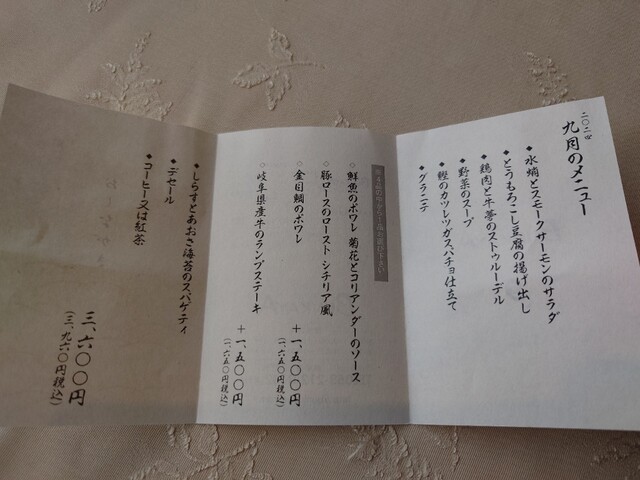 二〇二四
九月のメニュー
◆水蛸とスモークサーモンのサラダ
◆とうもろこし豆腐の揚げ出し
◆鶏肉と牛蒡のストゥルーデル
◆野菜のスープ
◆鰹のカツレツガスパチョ仕立て
◆グラニテ
◇鮮魚のポワレ 菊花とコリアンダーのソース
◇豚ロースのロースト シチリア風
◇金目鯛のポワレ
+一、五〇〇円
(一、六五〇円税込)
◇岐阜県産牛のランプステーキ
+一、五〇〇円
(一、六五〇円税込)
◆しらすとあおさ海苔のスパゲティ
◆デセール
◆コーヒー又は紅茶
三、六〇〇円
(三、九六〇円税込)